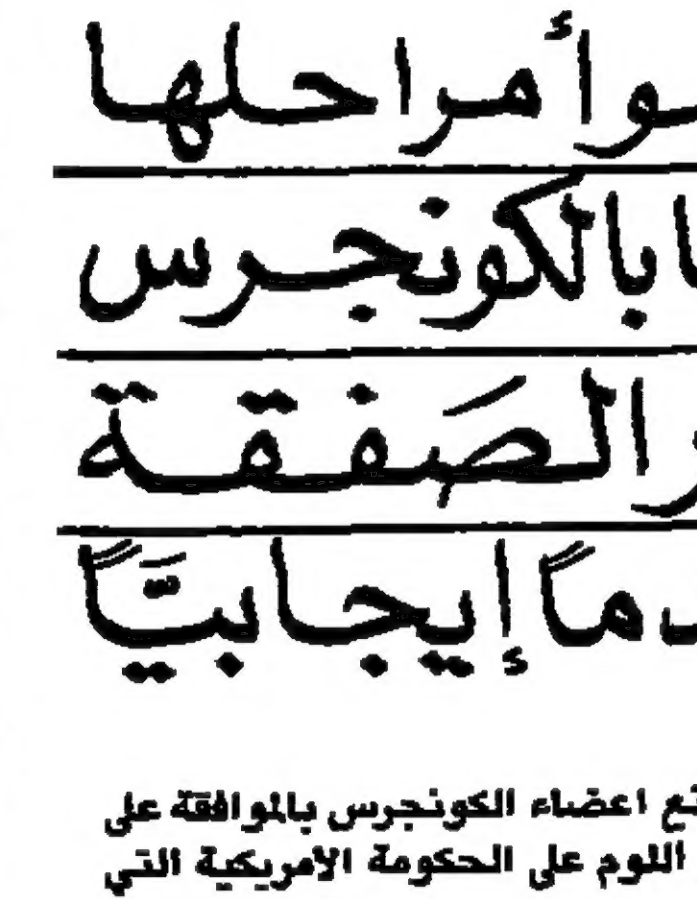 وأ مراحلها
ا بالكونجرس
ر الصَفقة
دماً إيجابيّاً
ع اعضاء الكونجرس بالموافقة على
اللوم على الحكومة الأمريكية التي